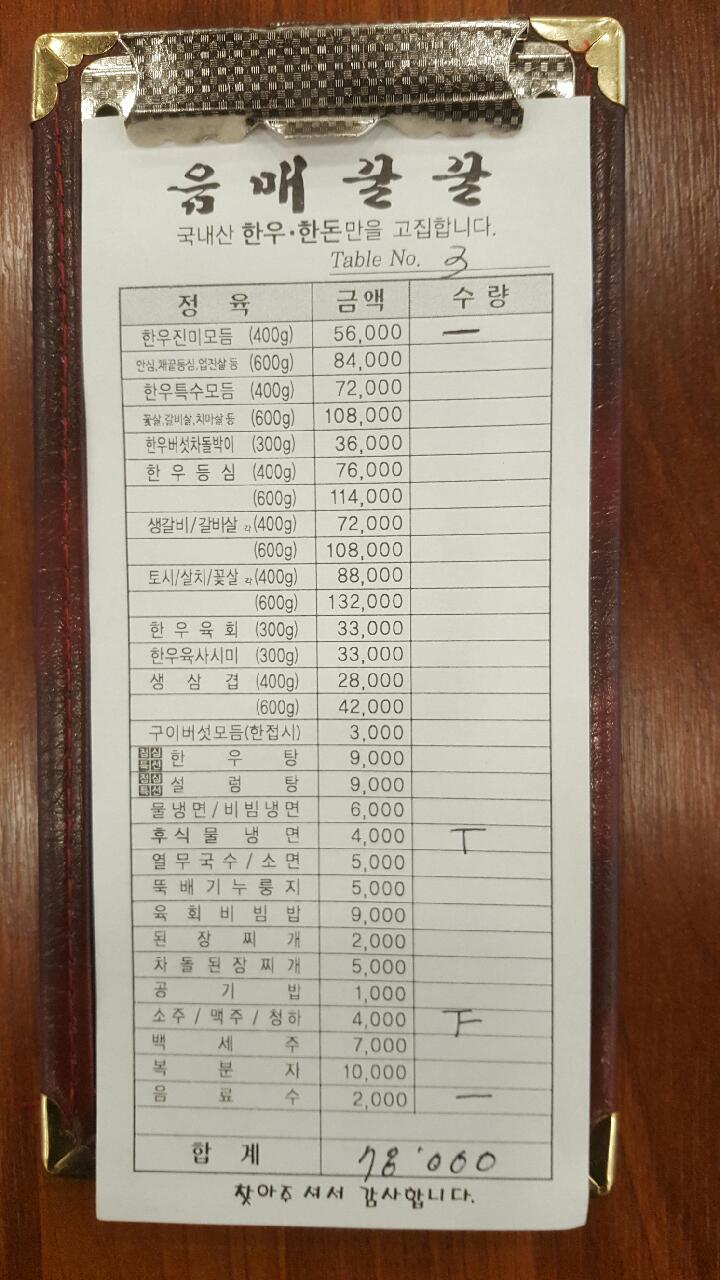 음매꿀꿀
국내산 한우·한돈만을 고집합니다.
Table No. 3
정 육 금액 수량
한우진미모듬 (400g) 56,000 一
안심,채끝등심,업진살 등 (600g) 84,000
한우특수모듬 (400g) 72,000
꽃살,갈비살,치마살 등 (600g) 108,000
한우버섯차돌박이 (300g) 36,000
한 우 등 심 (400g) 76,000
(600g) 114,000
생갈비/갈바살 각(400g) 72,000
(600g) 108,000
토시/살치/꽃살 각(400g) 88,000
(600g) 132,000
한 우 육 회 (300g) 33,000
한우육사시미 (300g) 33,000
생 삼 겹 (400g) 28,000
(600g) 42,000
구이버섯모듬(한접시) 3,000
점심특선 한 우 탕 9,000
점심특선 설 렁 탕 9,000
물냉면/비빔냉면 6,000
후식물 냉 면 4,000 T
열무국수/소면 5,000
뚝배기누룽지 5,000
육 회 비 빔 밥 9,000
된 장 찌 개 2,000
차돌된장찌개 5,000
공 기 밥 1,000
소주/맥주/청하 4,000 F
백 세 주 7,000
복 분 자 10,000
음 료 수 2,000 一
합 계 78,000
찾아주셔서 감사합니다.